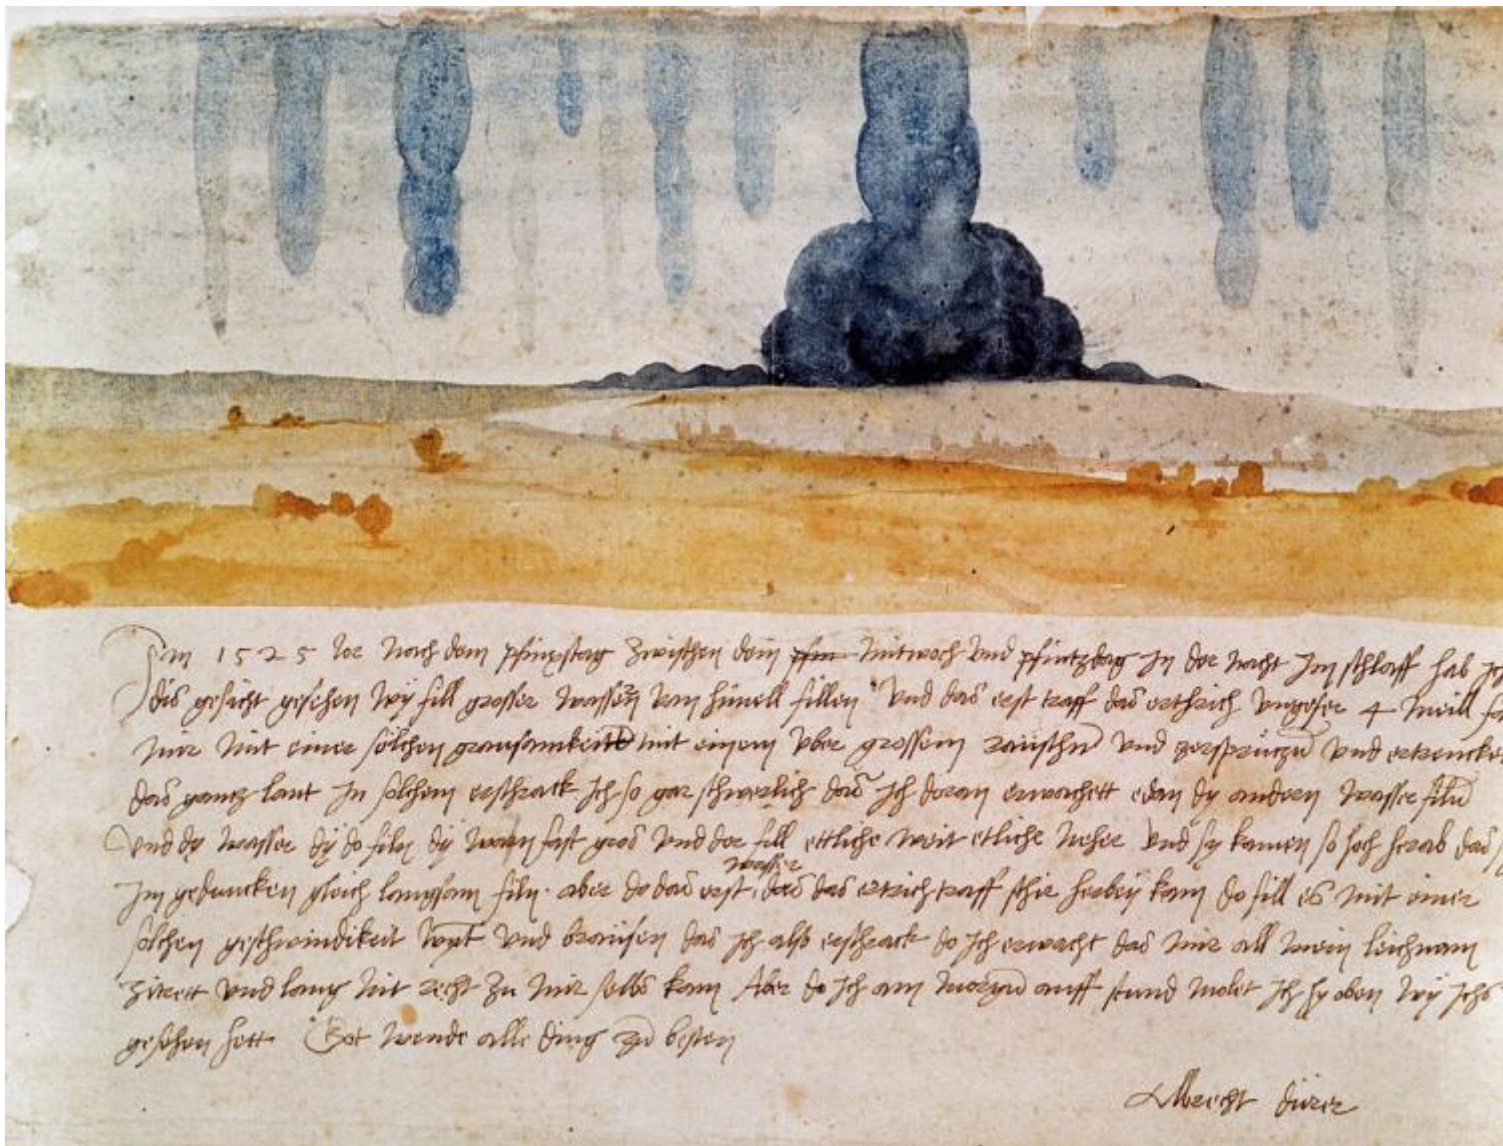 Im 1525 Jor nach dem pfinxstag zwischen dem pfin Mitwoch und pfintzdag in der nacht im schlaff hab ich
dis gesicht gesehen wy fill grosser wassern vom himell fillen Und das erst traff das erthrich ungefer 4 meill fa
mir mit einer solchen grausamkeitt mit einem uber grossem raüschn und zersprützn und ertrencket
das gantz lant In solchem erschrack ich so gar schwerlich das ich doran erwachett edan dy andern wasser filn
Und dy wasser dy do filn dy warn fast gros und der fill ettliche weit etliche neher und sy kamen so hoch herab das s
im gedancken gleich langsam filn. aber do das erst wasser das das ertrich traff schir herbey kam do fill es mit einer
solchen geschwindikeit wynt und braüsen das ich also erschrack do ich erwacht das mir all mein leichnam
zitrett und lang nit recht zu mir selbs kam Aber do ich am morgn auff stund molet ich hy oben wy ichs
gesehen hett Got wende alle ding zu besten
Albrecht dürer